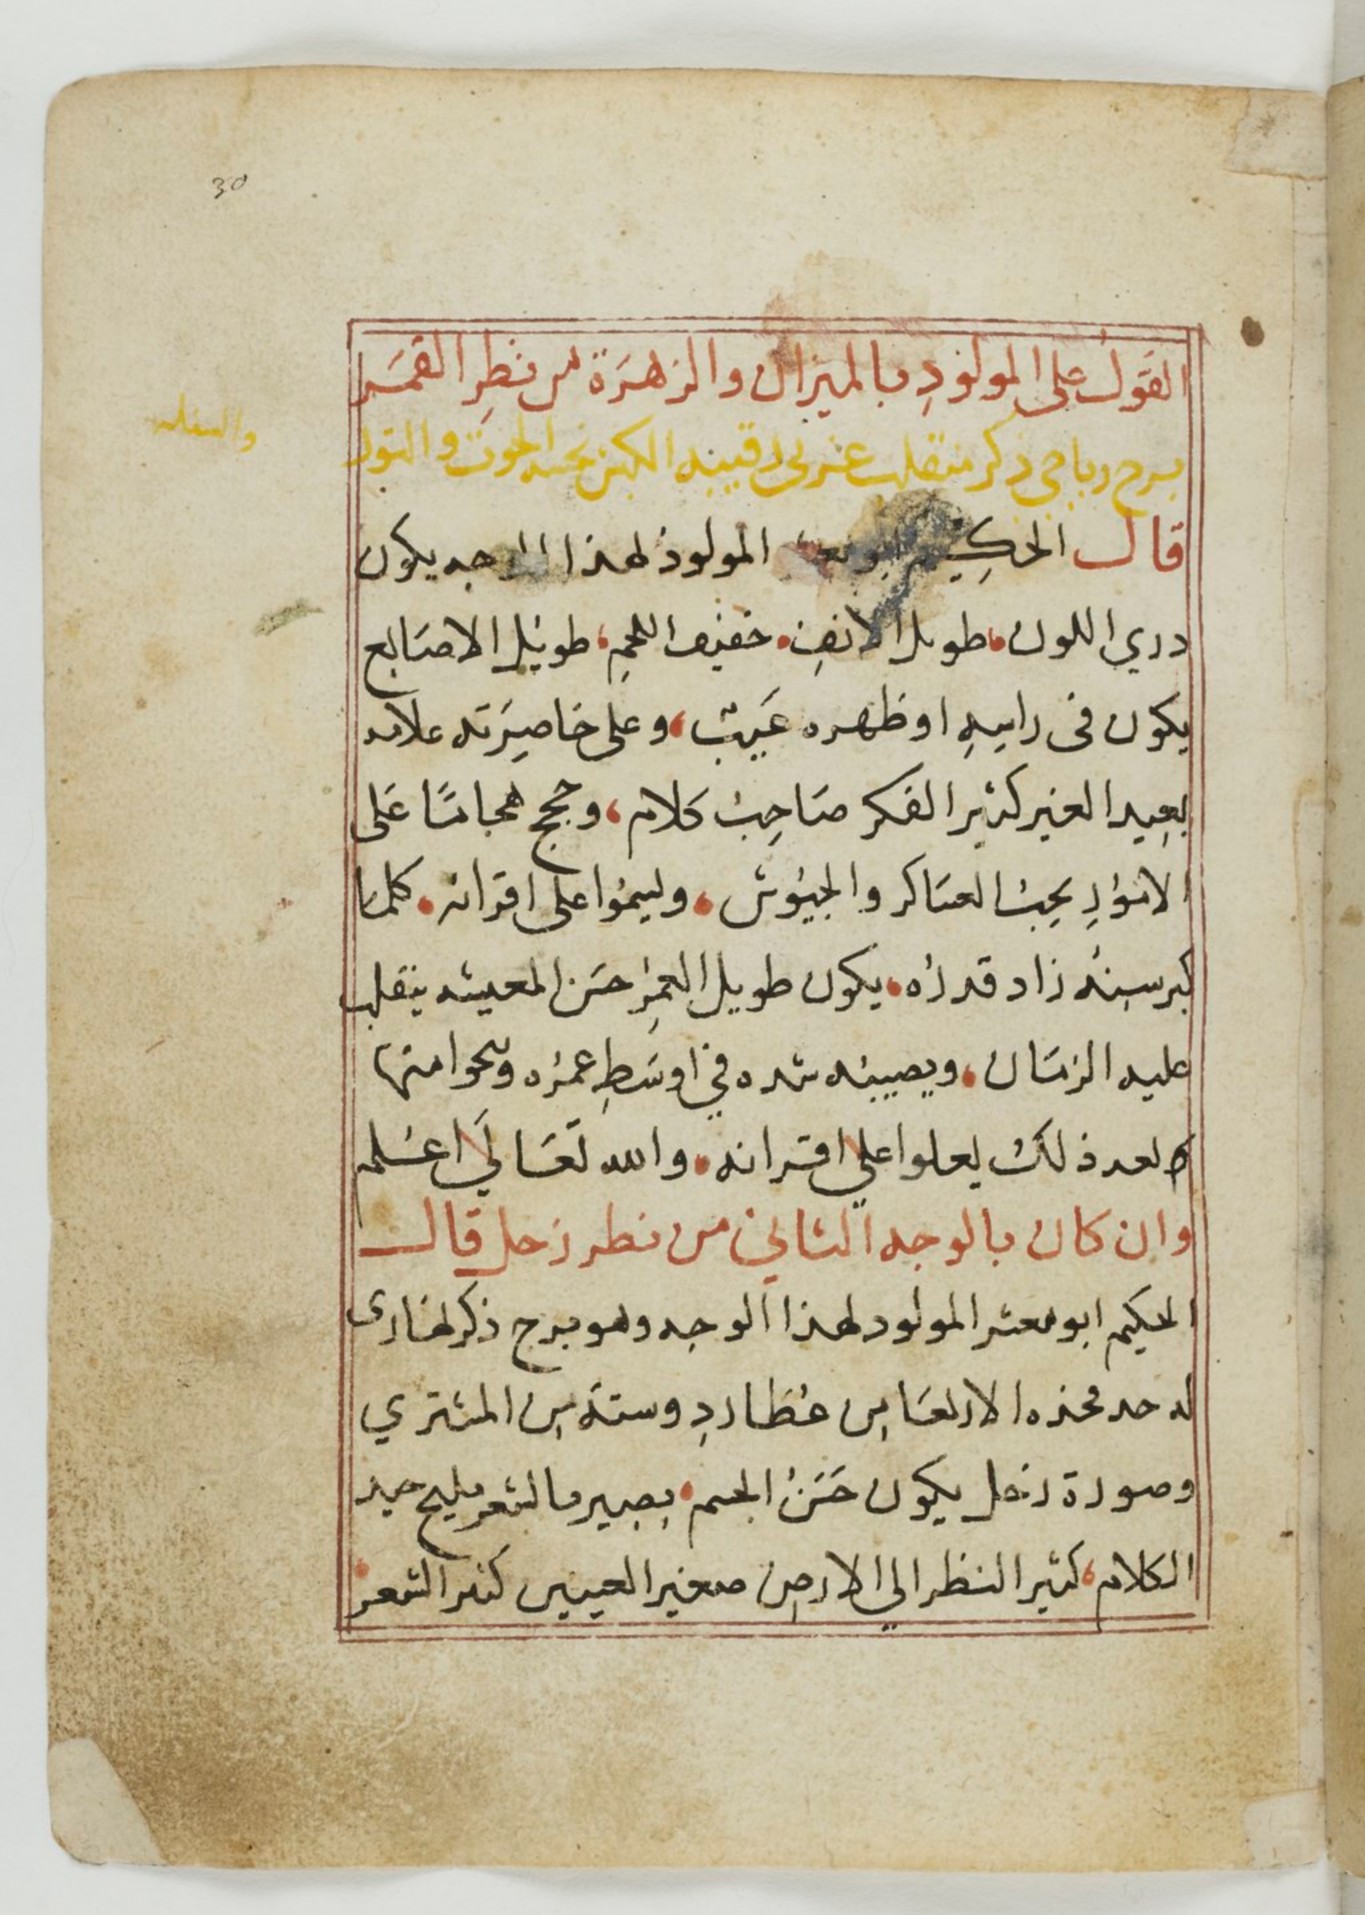 30
القول على المولود بالميزان والزهرة من نظر القمر
برج رياحي ذكر منقلب غربي رقيبه الكبش نحسه الحوت والثور
قال الحكيم ابو معشر المولود لهذا الوجه يكون
دري اللون طويل الانف خفيف اللحم طويل الاصابع
يكون في راسه او ظهره عيب وعلى خاصرته علامه
بعيد الغير كثير الفكر صاحب كلام وحجج هجاما على
الامور يحب العساكر والجيوش ويسموا على اقرانه كلما
كبر سنه زاد قدره يكون طويل العمر حسن المعيشه ينقلب
عليه الزمان ويصيبه شده في اوسط عمره وينجوا منها
بعد ذلك يعلوا على اقرانه والله تعالى اعلم
وان كان بالوجه الثاني من نظر زحل قال
الحكيم ابو معشر المولود لهذا الوجه وهو برج ذكر نهارى
له حد عطارد وسته من المشتري
وصورة زحل يكون حسن الجسم بصير بالشعر مليح جيد
الكلام كثير النظر الي الارض صغير العينين كثير الشعر